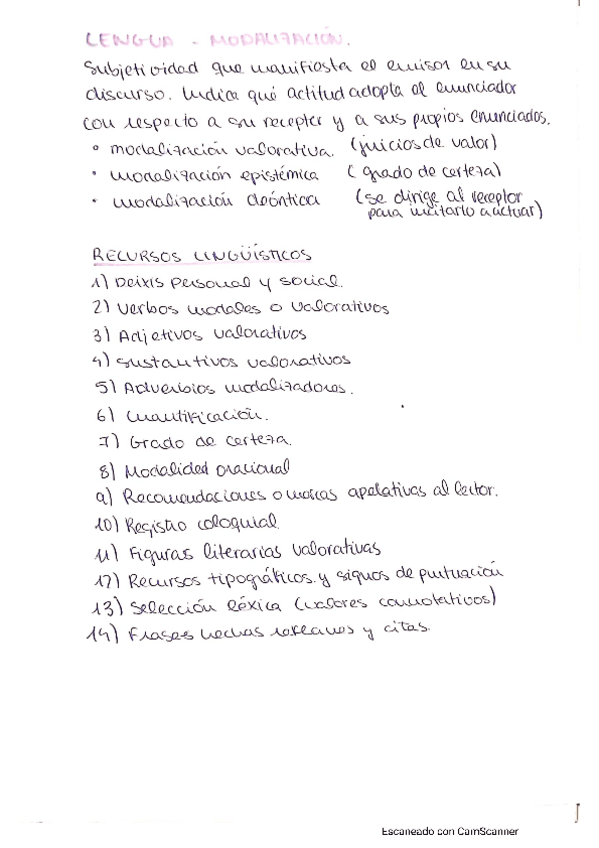 LENGUA - MODALIZACIÓN.
Subjetividad que manifiesta el emisor en su
discurso. Indica qué actitud adopta el enunciador
con respecto a su receptor y a sus propios enunciados.
• modalización valorativa. (juicios de valor)
• modalización epistémica (grado de certeza)
• modalización deóntica (se dirige al receptor
para incitarlo a actuar)
RECURSOS LINGÜÍSTICOS
1) Deixis personal y social.
2) Verbos modales o valorativos
3) Adjetivos valorativos
4) Sustantivos valorativos
5) Adverbios modalizadores.
6) Cuantificación.
7) Grado de certeza.
8) Modalidad oracional
9) Recomendaciones o marcas apelativas al lector.
10) Registro coloquial
11) Figuras literarias valorativas
12) Recursos tipográficos y signos de puntuación
13) Selección léxica (valores connotativos)
14) Frases hechas refranes y citas.
Escaneado con CamScanner